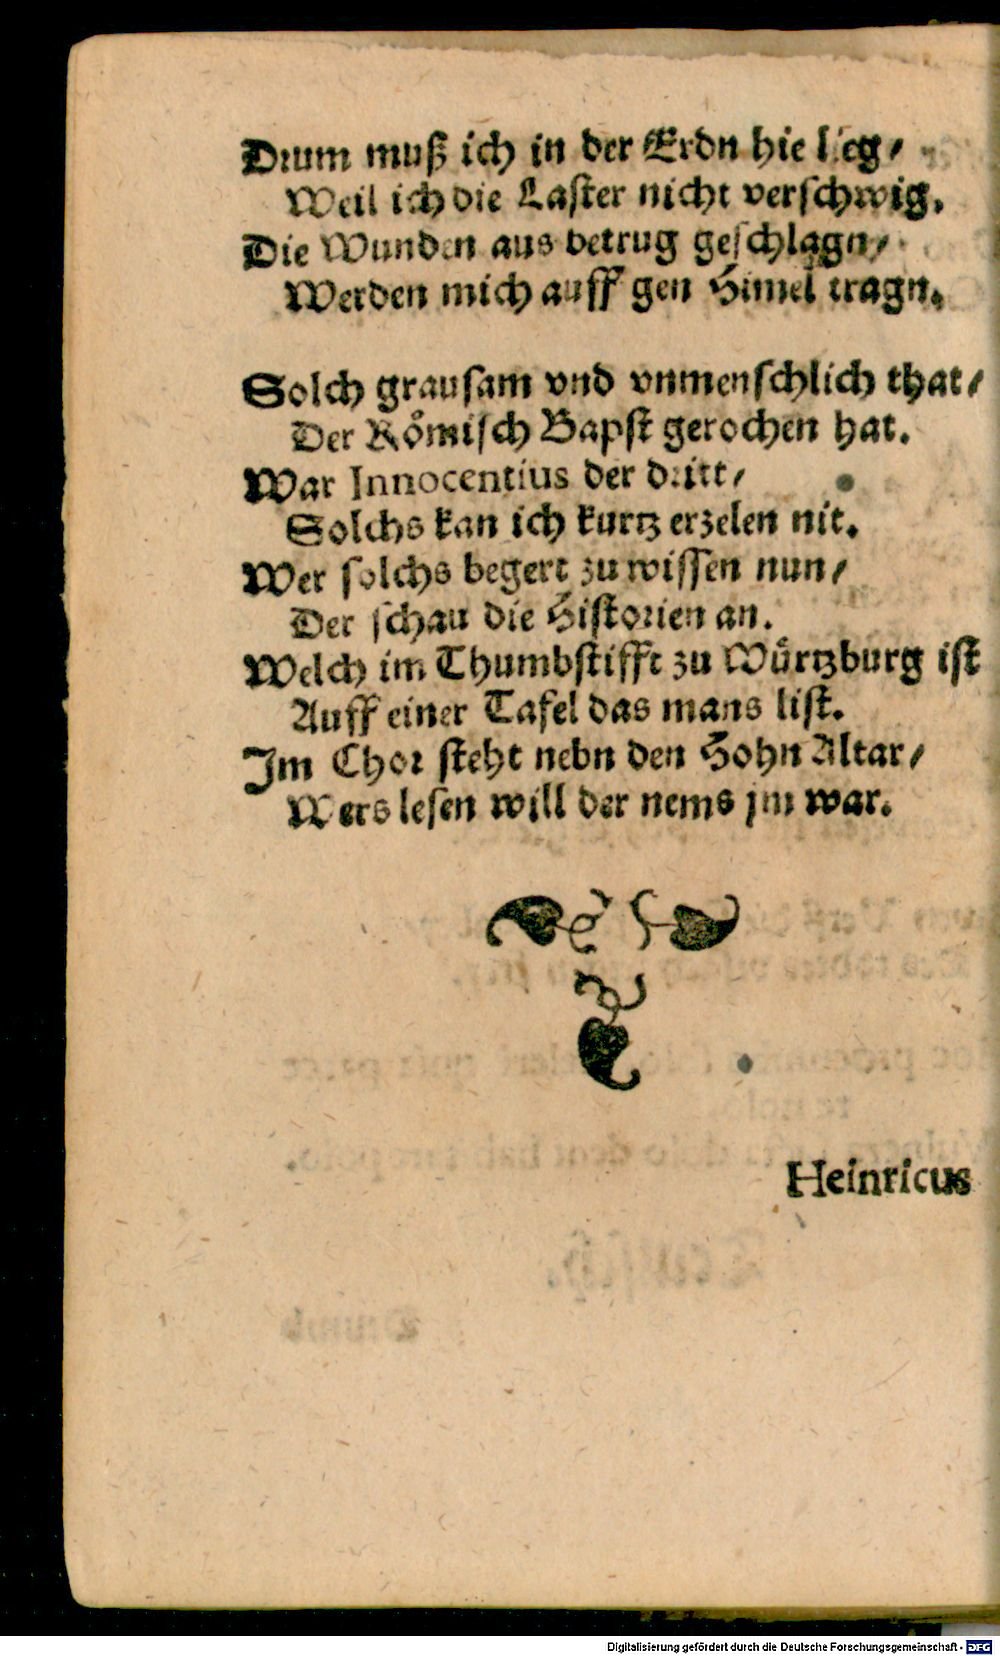 Drum muß ich in der Erdn hie lieg /
Weil ich die Laster nicht verschwig.
Die Wunden aus betrug geschlagn /
Werden mich auff gen Himel tragn.
Solch grausam vnd vnmenschlich that /
Der Roͤmisch Bapst gerochen hat.
War Innocentius der dritt /
Solchs kan ich kurtz erzelen nit.
Wer solchs begert zu wissen nun /
Der schau die Historien an.
Welch im Thumbstifft zu Wuͤrtzburg ist
Auff einer Tafel das mans list.
Im Chor steht nebn den Hohn Altar /
Wers lesen will der nems jm war.
Heinricus
Digitalisierung gefördert durch die Deutsche Forschungsgemeinschaft - DFG